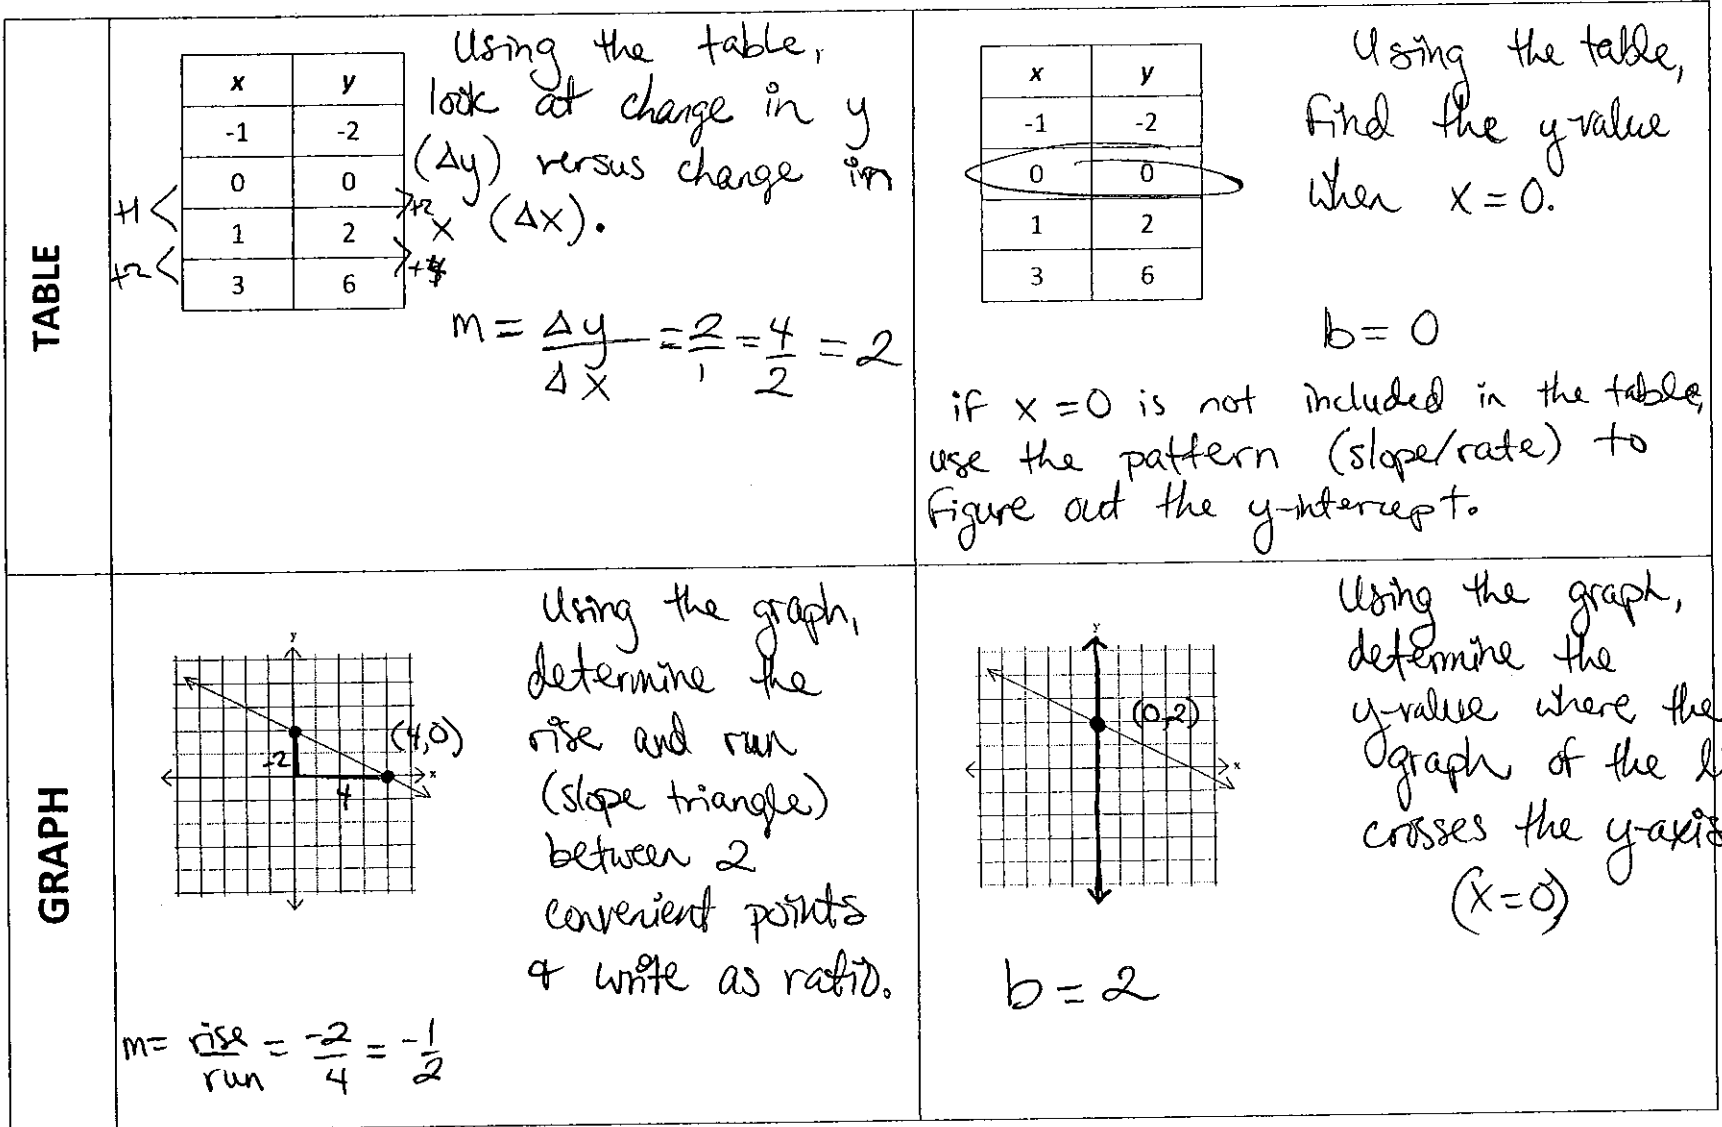 TABLE
x y
-1 -2
0 0
1 2
3 6
+1
+2
+2
Using the table,
look at change in y
(Δy) versus change in
x (Δx).
m = Δy/Δx = 2/1 = 4/2 = 2
x y
-1 -2
0 0
1 2
3 6
Using the table,
Find the y-value
when x = 0.
b = 0
if x = 0 is not included in the table,
use the pattern (slope/rate) to
Figure out the y-intercept.
GRAPH
y
x
(4,0)
-2
4
Using the graph,
determine the
rise and run
(slope triangle)
between 2
convenient points
& write as ratio.
m = rise/run = -2/4 = -1/2
y
x
(0,2)
Using the graph,
determine the
y-value where the
graph of the
crosses the y-axis
(x=0)
b = 2